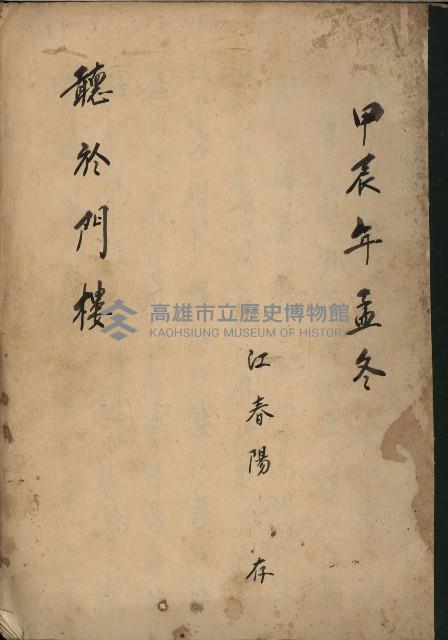 甲辰年孟冬
江春陽 存
聽於門樓
高雄市立歷史博物館
KAOHSIUNG MUSEUM OF HISTORY